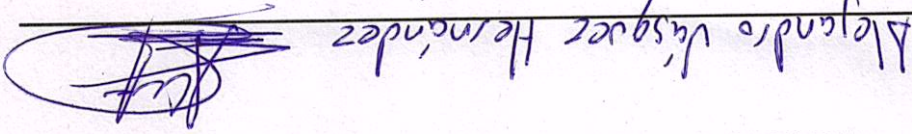 Alejandro Vásquez Hernández